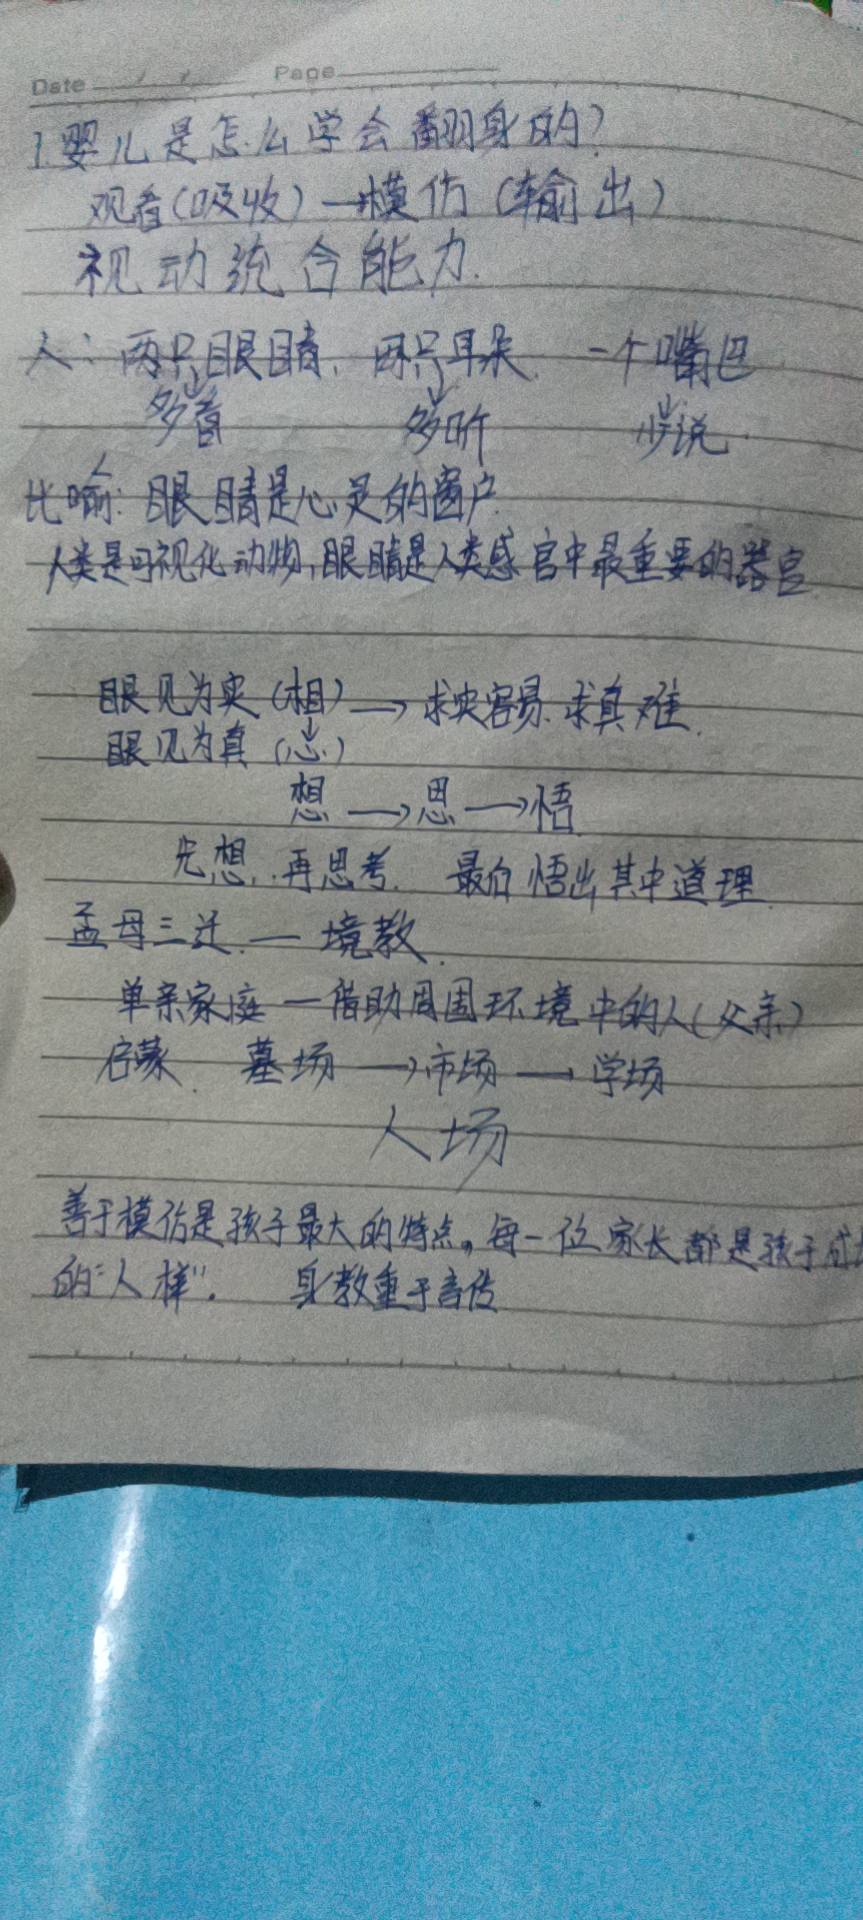 Date / / Page
1.婴儿是怎么学会翻身的?
观看(吸收)→模仿(输出)
视动统合能力.
人: 两只眼睛. 两只耳朵. 一个嘴巴
↓多看 ↓多听 ↓少说.
比喻: 眼睛是心灵的窗户.
人类是可视化动物,眼睛是人类感官中最重要的器官
眼见为实(相)→求实容易.求真难.
眼见为真(心)
想→思→悟
先想..再思考. 最后悟出其中道理.
孟母三迁.—境教.
单亲家庭—借助周围环境中的人(父亲)
启蒙. 墓场→市场→学场
人场
善于模仿是孩子最大的特点。每一位家长都是孩子成
的"人样". 身教重于言传